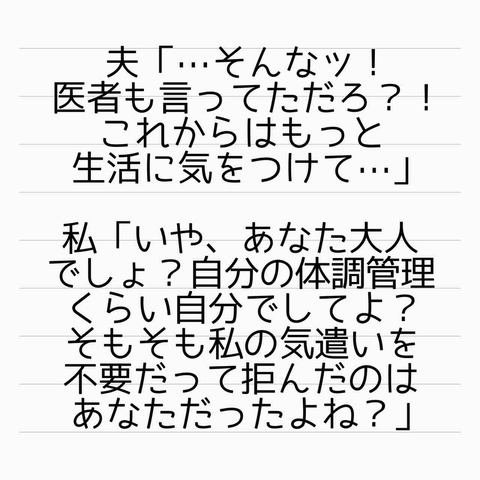 夫「…そんなッ！
医者も言ってただろ？！
これからはもっと
生活に気をつけて…」
私「いや、あなた大人
でしょ？自分の体調管理
くらい自分でしてよ？
そもそも私の気遣いを
不要だって拒んだのは
あなただったよね？」